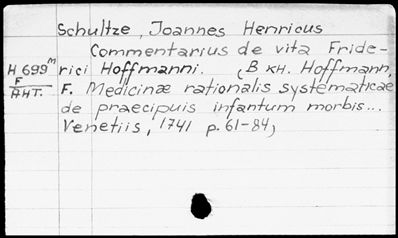 Schultze, Joannes Henricus
Commentarius de vita Fride-
H 699m
F
АНТ.
rici Hoffmanni. (В кн. Hoffmann,
F. Medicinæ rationalis systematicae
de praecipuis infantum morbis...
Venetiis, 1741 p. 61-84)